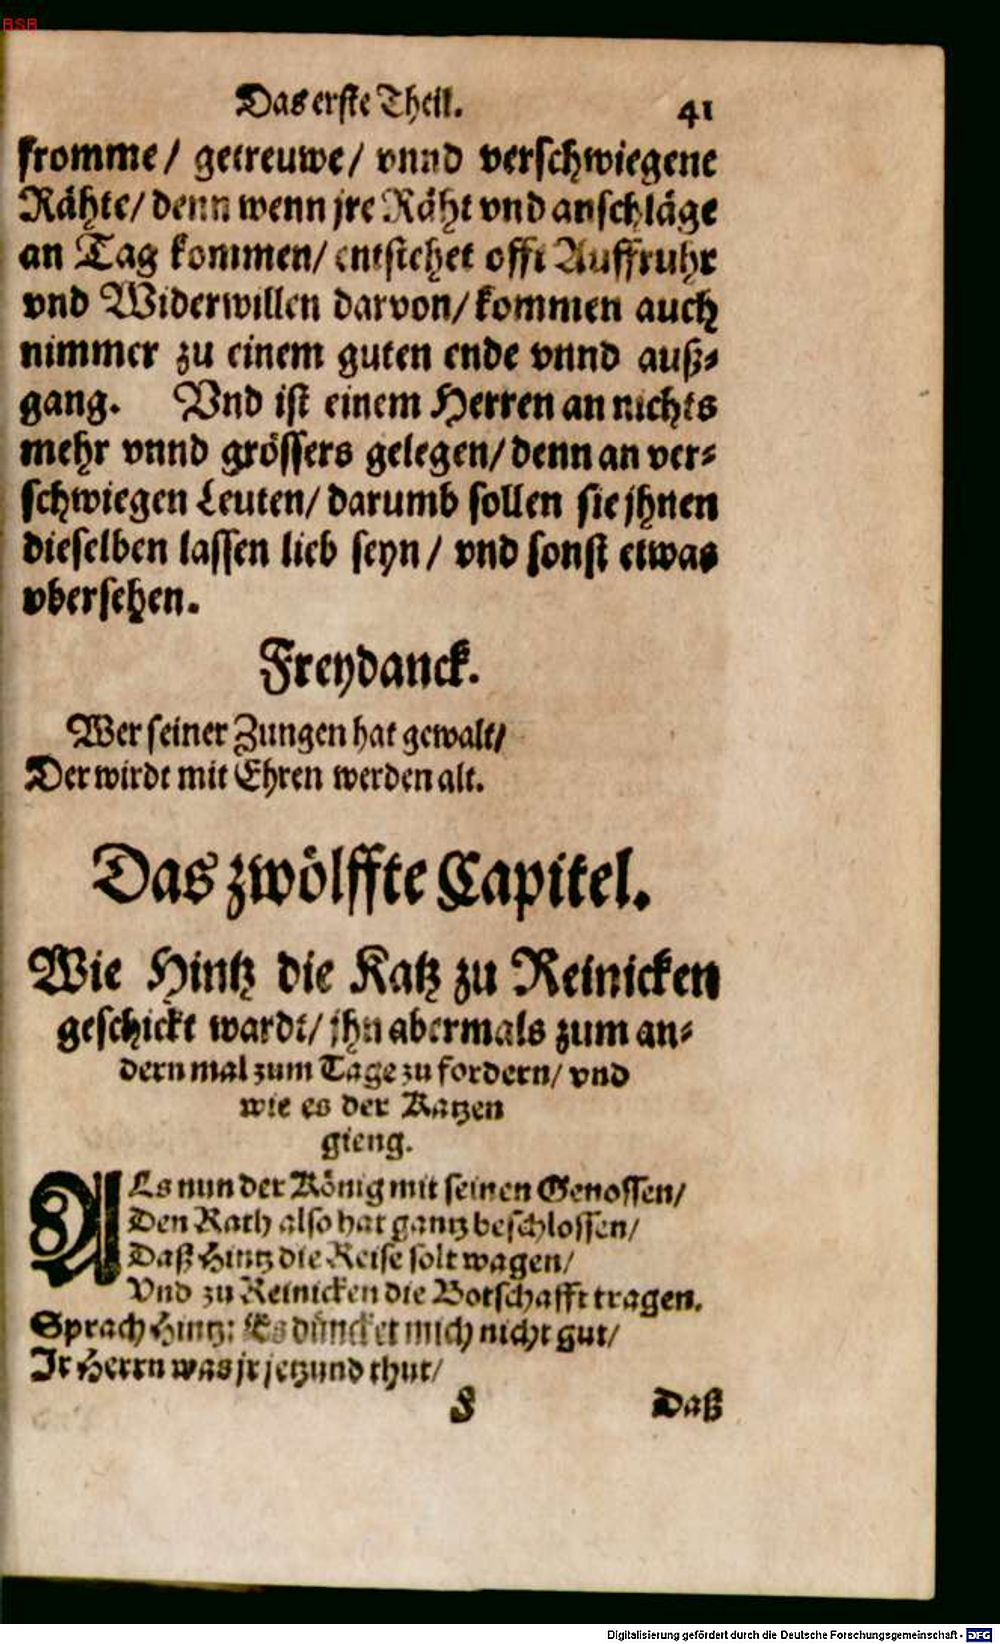 BSB
Das erste Theil. 41
fromme/ getreuwe/ vnnd verschwiegene
Rähte/ denn wenn jre Räht vnd anschläge
an Tag kommen/ entstehet offt Auffruhr
vnd Widerwillen darvon/ kommen auch
nimmer zu einem guten ende vnnd auß⸗
gang. Vnd ist einem Herren an nichts
mehr vnnd grössers gelegen/ denn an ver⸗
schwiegen Leuten/ darumb sollen sie jhnen
dieselben lassen lieb seyn/ vnd sonst etwas
vbersehen.
Freydanck.
Wer seiner Zungen hat gewalt/
Der wirdt mit Ehren werden alt.
Das zwölffte Capitel.
Wie Hintz die Katz zu Reinicken
geschickt wardt/ jhn abermals zum an⸗
dern mal zum Tage zu fordern/ vnd
wie es der Katzen
gieng.
ALs nun der König mit seinen Genossen/
Den Rath also hat gantz beschlossen/
Daß Hintz die Reise solt wagen/
Vnd zu Reinicken die Botschafft tragen.
Sprach Hintz: Es düncket mich nicht gut/
Ir Herrn was jr jetzund thut/
F Daß
Digitalisierung gefördert durch die Deutsche Forschungsgemeinschaft - DFG